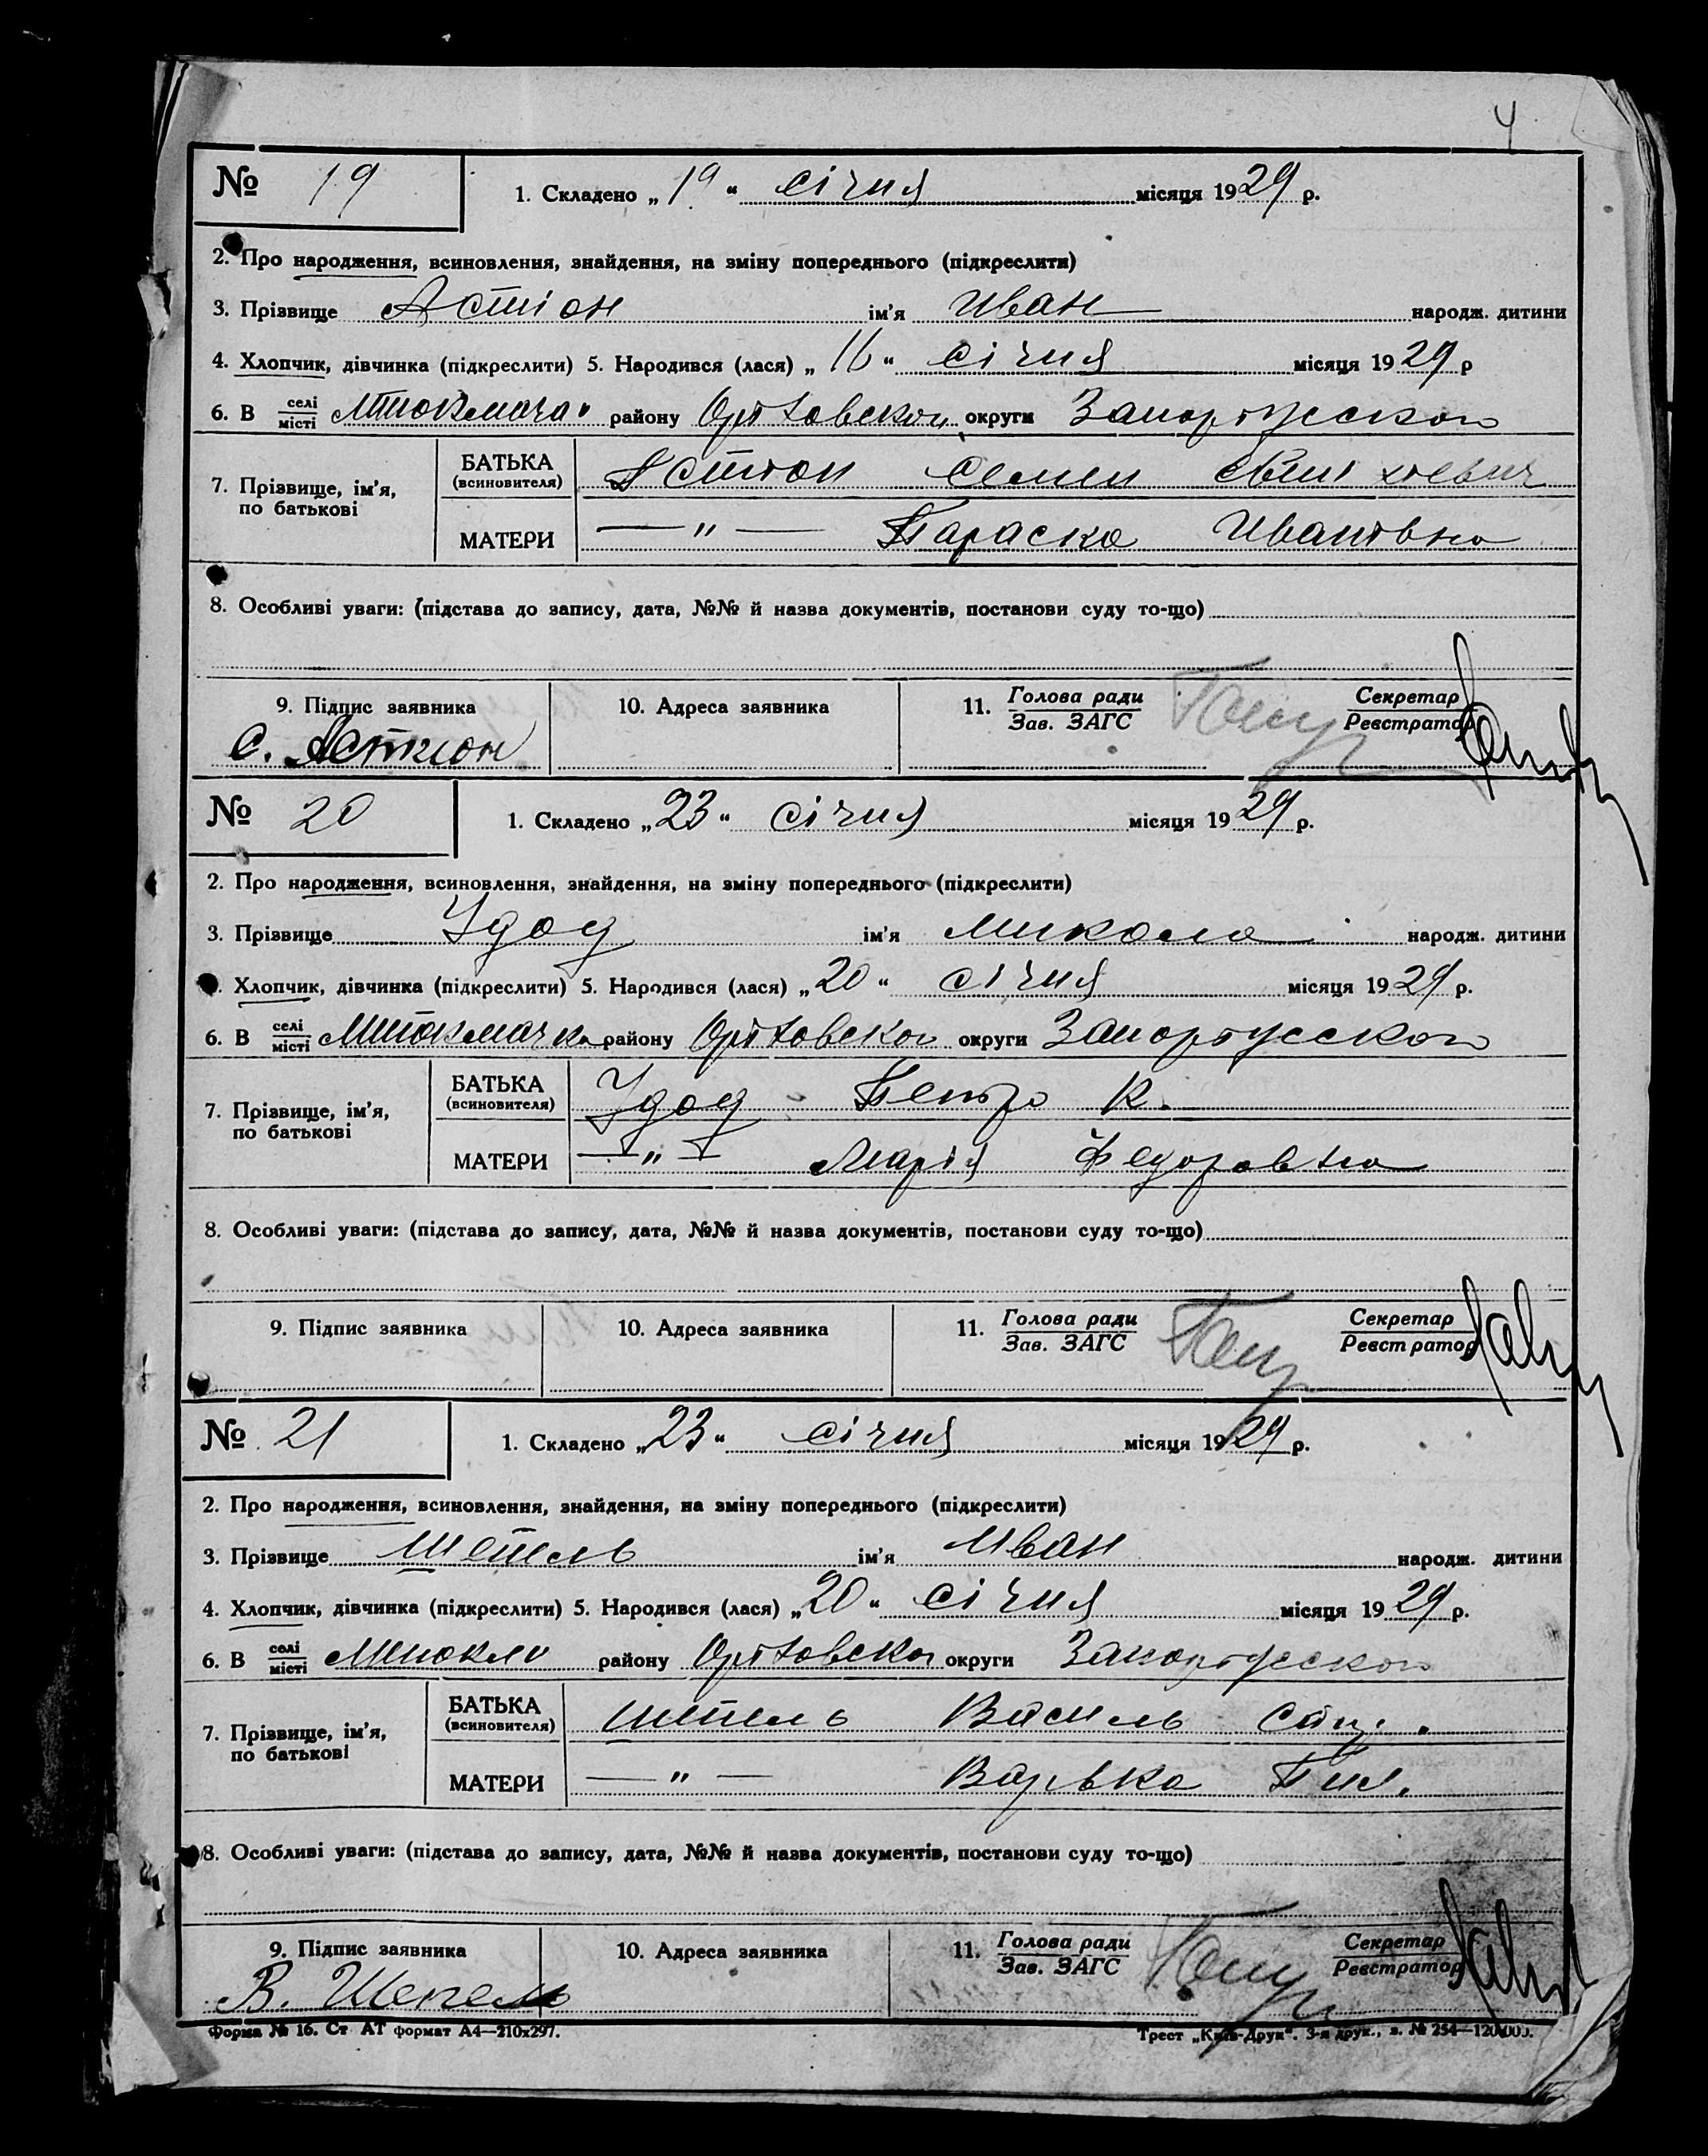 4
№ 19 1. Складено „19“ січня місяця 1929 р.
2. Про народження, всиновлення, знайдення, на зміну попереднього (підкреслити)
3. Прізвище Астіон ім'я Иван народж. дитини
4. Хлопчик, дівчинка (підкреслити) 5. Народився (лася) „16“ січня місяця 1929 р
6. В селі місті району округи
7. Прізвище, ім'я, по батькові БАТЬКА (всиновителя) Астіон Семен
МАТЕРИ —"— Параска Ивановна
8. Особливі уваги: (підстава до запису, дата, №№ й назва документів, постанови суду то-що)
9. Підпис заявника 10. Адреса заявника 11. Голова ради Зав. ЗАГС Секретар Реєстратор
С. Астион
№ 20 1. Складено „23“ січня місяця 1929 р.
2. Про народження, всиновлення, знайдення, на зміну попереднього (підкреслити)
3. Прізвище Удод ім'я Микола народж. дитини
Хлопчик, дівчинка (підкреслити) 5. Народився (лася) „20“ січня місяця 1929 р.
6. В селі місті району округи
7. Прізвище, ім'я, по батькові БАТЬКА (всиновителя) Удод Петро К.
МАТЕРИ —"— Марія Федоровна
8. Особливі уваги: (підстава до запису, дата, №№ й назва документів, постанови суду то-що)
9. Підпис заявника 10. Адреса заявника 11. Голова ради Зав. ЗАГС Секретар Реєстратор
№ 21 1. Складено „23“ січня місяця 1929 р.
2. Про народження, всиновлення, знайдення, на зміну попереднього (підкреслити)
3. Прізвище Шепель ім'я Иван народж. дитини
4. Хлопчик, дівчинка (підкреслити) 5. Народився (лася) „20“ січня місяця 1929 р.
6. В селі місті району округи
7. Прізвище, ім'я, по батькові БАТЬКА (всиновителя) Шепель Василь
МАТЕРИ —"— Варька
8. Особливі уваги: (підстава до запису, дата, №№ й назва документів, постанови суду то-що)
9. Підпис заявника 10. Адреса заявника 11. Голова ради Зав. ЗАГС Секретар Реєстратор
В. Шепель
Форма № 16. Ст. АТ формат А4—210х297. Трест „Київ-Друк“. 3-я друк., з. № 254—120.000.